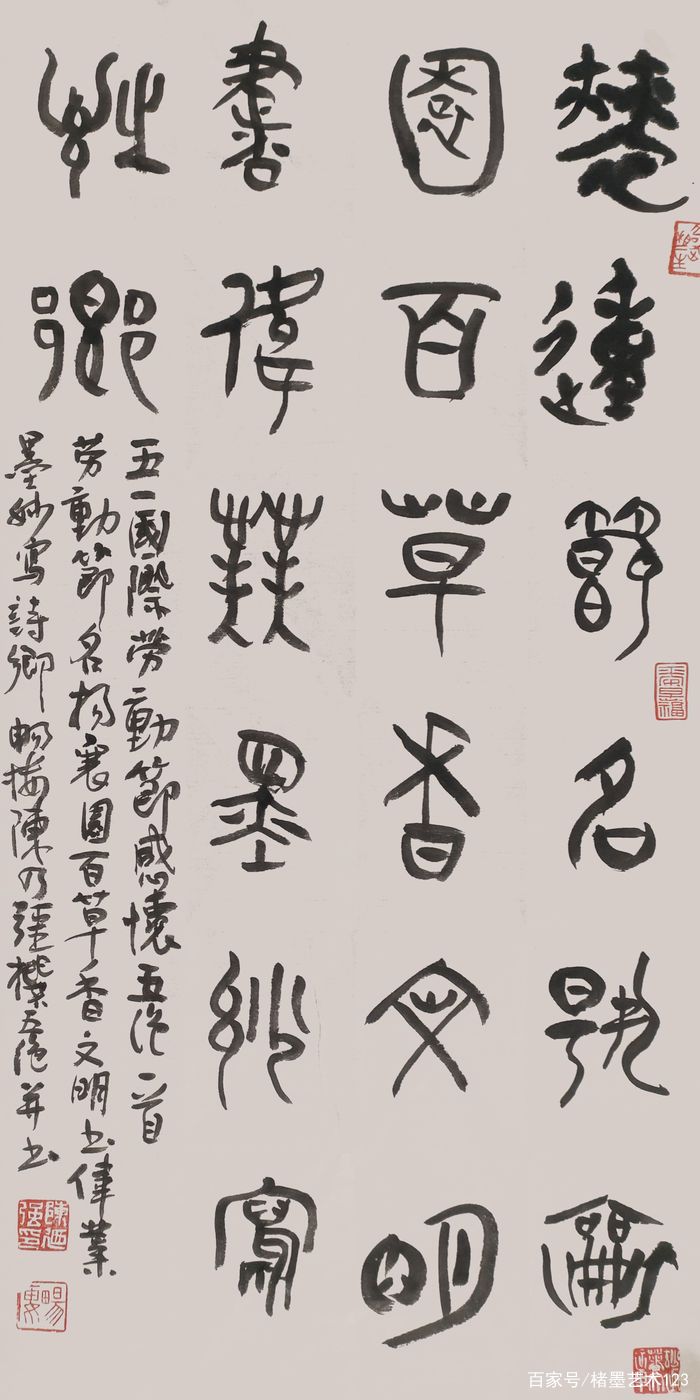 勞動節名揚寰
園百草香文明
書偉業墨妙寫
詩鄉
五一國際勞動節感懷五絕一首
勞動節名揚寰園百草香文明書偉業
墨妙寫詩鄉 陳乃強撰五絕并書
百家号/楮墨艺术123